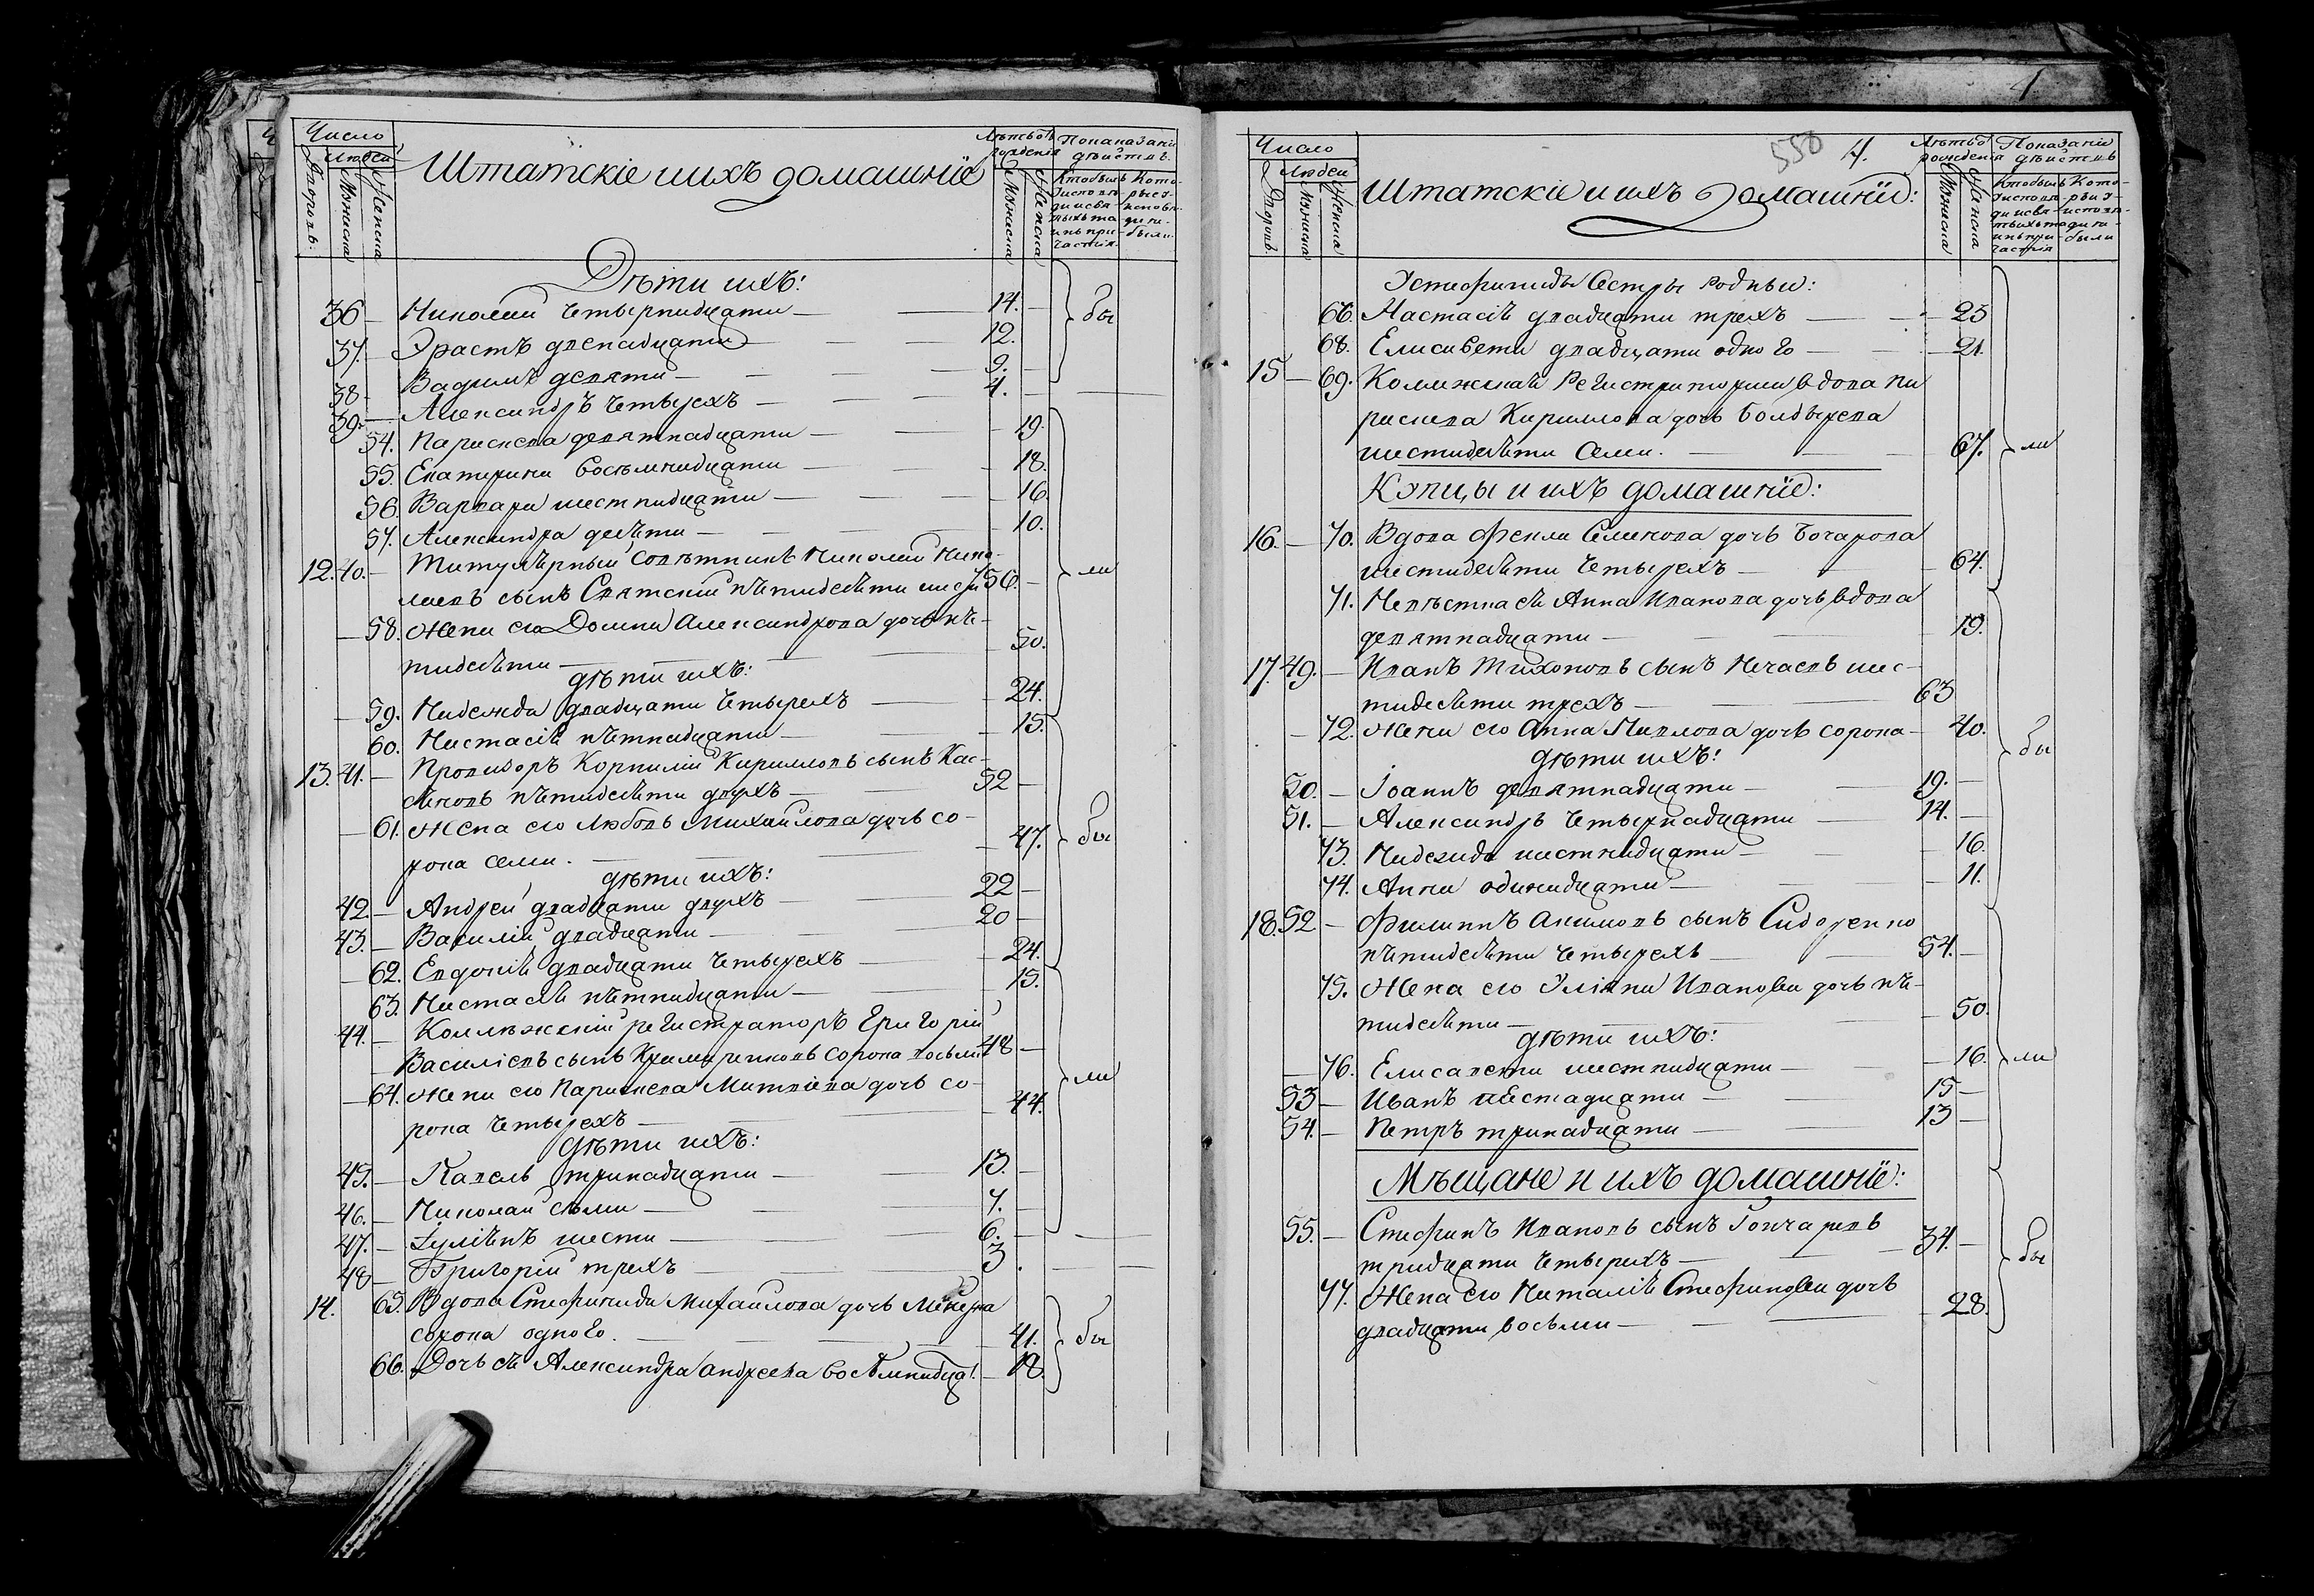 Число
Людей
Дворовъ.
Мужеска
Женска
Штатскіе и ихъ домашніе
Лѣтъ отъ рожденія
Мужеска
Женска
Показаніе дѣйствъ.
Дѣти ихъ:
36 — Николай четырнадцати — 14. —
37. — Эрастъ двенадцати — 12.
38 — Вадимъ девяти — 9. —
39. — Александръ четырехъ — 4. —
54. Парасков͡а девятнадцати — 19.
55. Екатерина восемнадцати — 18.
56. Варвара шестнадцати — 16.
57. Александра десѣти — 10.
бы
12. 40. — Титулѣрный Совѣтникъ Николай Нико-
лаевъ сынъ Святскій пѣтидесѣти шести 56. —
— 58. Жена его Домна Александрова дочь пѣ-
тидесѣти — 50.
дѣти ихъ:
— 59. Надежда двадцати четырехъ — 24.
60. Настасіѣ пѣтнадцати — 15.
ли
13. 41. — Провизоръ Корнилій Кирилловъ сынъ Кас-
сѣновъ пѣтидесѣти двухъ — 52 —
— 61. Жена его Любовь Михайлова дочь со-
рока семи. — 47.
дѣти ихъ:
42 — Андрей двадцати двухъ — 22 —
43. — Василій двадцати — 20 —
— 62. Евдокіѣ двадцати четырехъ — 24.
63. Настасіѣ пѣтнадцати — 15.
бы
44. — Коллежскій регистраторъ Григорій
— Василіевъ сынъ сорока восьми 48 —
— 64. Жена его Параскева Матвіева дочь со-
рока четырехъ — 44.
дѣти ихъ:
45. — Павелъ тринадцати — 13. —
46. — Николай семи — 7. —
47. — Іуліѣнъ шести — 6. —
48 — Григорій трехъ — 3. —
ли
14. 65. Вдова Стефанида Михайлова дочь
сорока одного. — 41.
66. Дочь еѣ Александра Андреева восѣмнадца. — 18.
бы
550
4.
Число
Людей
Дворовъ.
Мужеска
Женска
Штатскіе и ихъ домашніе:
Лѣтъ отъ рожденія
Мужеска
Женска
Показаніе дѣйствъ
У Стефаниды Сестры родные:
66. Настасіѣ двадцати трехъ — 23
68. Елисавета двадцати одного — 21.
15 — 69. Колежскаѣ Регистраторша вдова Па
раскева Кириллова дочь Болдырева
шестидесѣти Семи. — 67.
ли
Купцы и ихъ домашніе:
16. — 70. Вдова Фекла Семенова дочь Бочарова
шестидесѣти четырехъ — 64.
71. Невѣстка еѣ Анна Иванова дочь вдова
девятнадцати — 19.
17. 49. — Иванъ Тихоновъ сынъ Нечаевъ шес-
тидесѣти трехъ — 63
— 72. Жена его Анна Павлова дочь сорока — 40.
дѣти ихъ:
50. — Іоаннъ девятнадцати — 19. —
51. — Александръ четырнадцати — 14. —
73. Надежда шестнадцати — 16.
74. Анна одинадцати — 11.
бы
18. 52 — Филиппъ Акимовъ сынъ Сидоренко
пѣтидесѣти четырехъ — 54. —
75. Жена его Уліяна Иванова дочь пѣ-
тидесѣти — 50.
дѣти ихъ:
— 76. Елисавета шестнадцати — 16.
53 — Иванъ — 15 —
54. — Петръ тринадцати — 13 —
ли
Мѣщане и ихъ домашніе:
55. — Стефанъ Ивановъ сынъ Гончаровъ
тридцати четырехъ — 34. —
77. Жена его Наталіѣ Стефанова дочь
двадцати восьми — 28.
бы